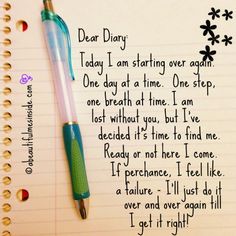 Dear Diary:
Today I am starting over again.
One day at a time. One step,
one breath at time. I am
lost without you, but I've
decided it's time to find me.
Ready or not here I come.
If perchance, I feel like
a failure - I'll just do it
over and over again till
I get it right!
© abeautifulmeinside.com